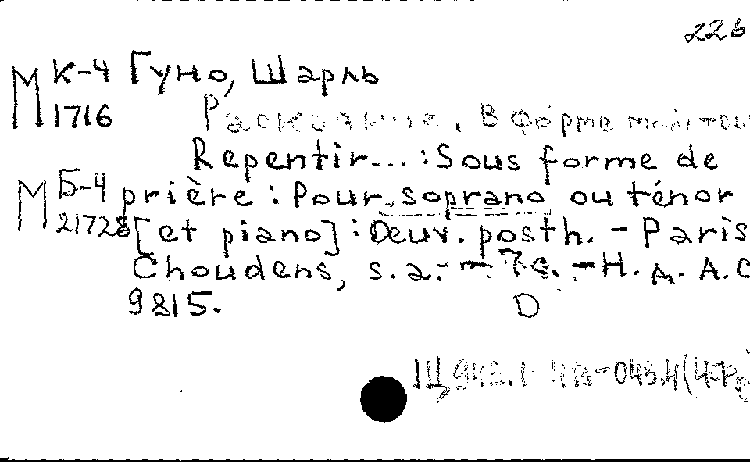 226
М К-4 Гуно, Шарль
1716 Раскаяние. В форме
Repentir... : Sous forme de
М Б-4 prière : Pour soprano ou ténor
21728 [et piano] : Oeuv. posth. - Paris
Choudens, s.a. - 7 с. - Н. д. A.C
9815.
D
Щ